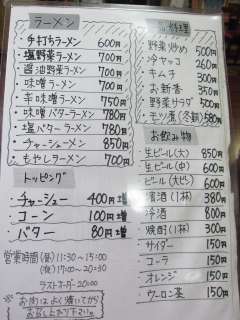 ラーメン
手打ちラーメン 600円
塩野菜ラーメン 700円
醤油野菜ラーメン 700円
味噌ラーメン 700円
辛味噌ラーメン 750円
味噌バターラーメン 780円
塩バターラーメン 780円
チャーシューメン 850円
もやしラーメン 700円
トッピング
チャーシュー 400円増
コーン 100円増
バター 80円増
営業時間(昼)11:30~15:00
(夜)17:00~20:30
ラストオーダー 20:00
※お肉はよく焼いてから
お召し上がり下さい。
一品料理
野菜炒め 500円
冷ヤッコ 260円
キムチ 300円
お新香 350円
野菜サラダ 500円
モツ煮(冬季) 580円
お飲み物
生ビール(大) 850円
生ビール(中) 600円
ビール(大ビン) 600円
清酒(1杯) 380円
冷酒 800円
焼酎(1杯) 300円
サイダー 150円
コーラ 150円
オレンジ 150円
ウーロン茶 150円